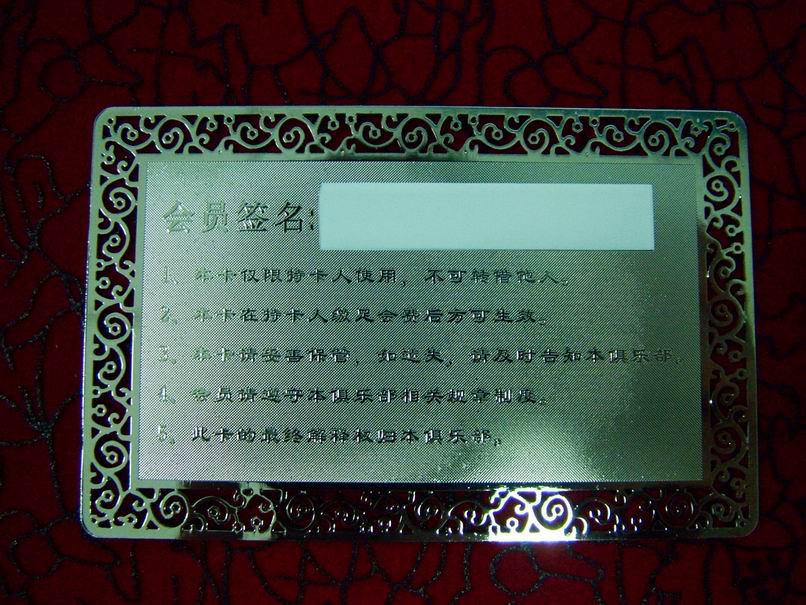 会员签名:
1、本卡仅限持卡人使用，不可转借他人。
2、本卡在持卡人缴足会费后方可生效。
3、本卡请妥善保管，如遗失，请及时告知本俱乐部。
4、会员请遵守本俱乐部相关规章制度。
5、此卡的最终解释权归本俱乐部。